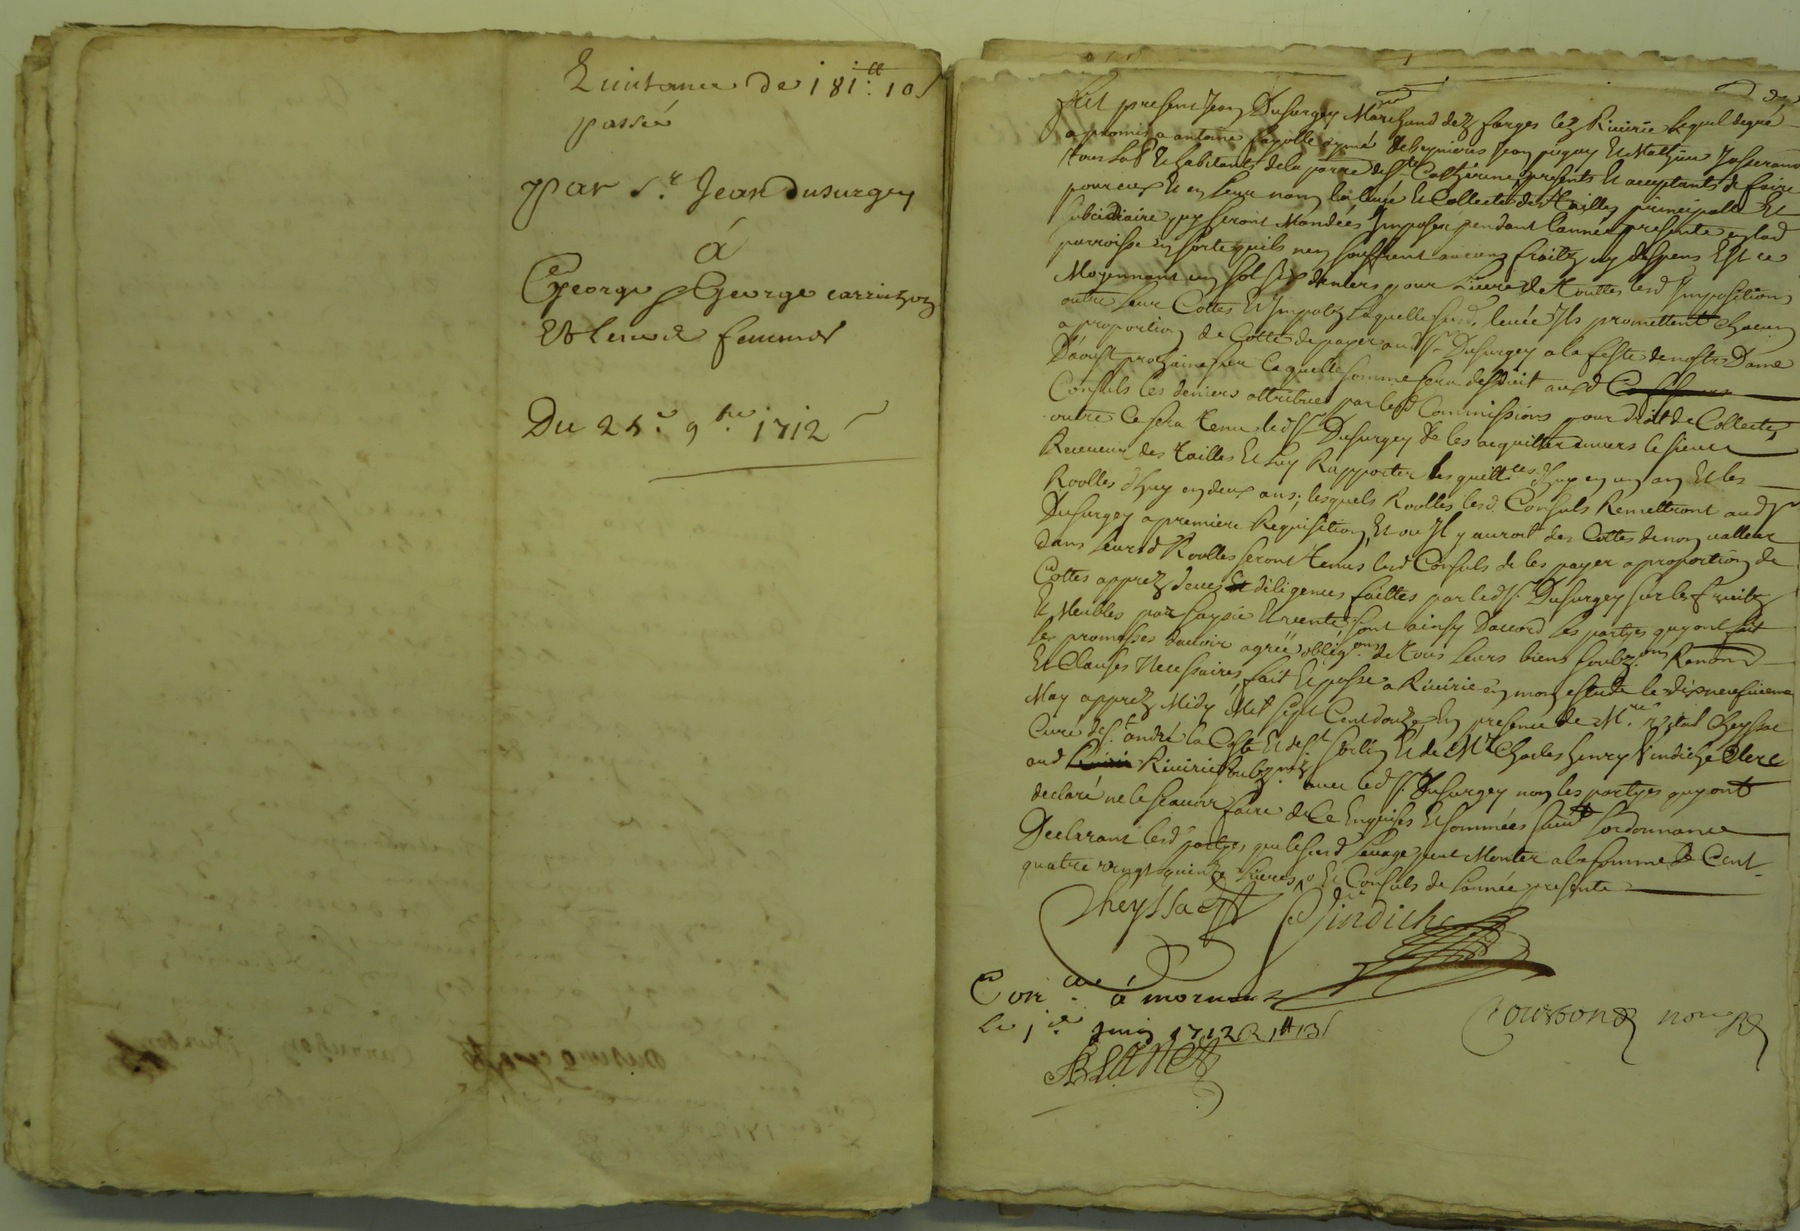 Quittance de 181ᵗᵗ: 10ˢ
passée
par Sʳ. Jean Dusurgey
á
George & George carrichon
Et leurs femmes
Du 25ᵉ. 9ᵇʳᵉ. 1712
fut present Jean Dusurgey Marchand des farges lez Riuirie lequel de gré
a promis a antoine aymé Jean pigay Et Mathieu Jasserand
tous Lab. Et habitants de la parre de Sᵗᵉ Catherine presents Et acceptants de faire
pour eux Et en leur nom la leuée Et Collecte des Tailles principalle Et
subcidiaire quy seront Mandées Imposer pendant l'année presente en lad
parroisse en sorte quils nen souffrent aucuns fraitz ny despens Et ce
Moyennant un sol six deniers pour Liure de touttes lesd Impositions
outre leur Cottes Et Impotz laquelle susd. leuée Ils promettent chacun
a proportion de Cotte de payer aud Sʳ Dusurgey a la feste de nostre Dame
D'aoust prochaine sur laquelle somme sera desduit ausd
Consuls les deniers attribues par lesd Commissions pour droit de Collecte,
outre ce sera tenu led Sʳ Dusurgey de les acquitter enuers le sieur
Receueur des tailles Et luy Rapporter les quittᶜᵉˢ d'huy en un an Et les
Roolles d'huy en deux ans; lesquels Roolles lesd. Consuls Remettront aud Sʳ
Dusurgey a premiere Requisition, Et ou Il y auroit des Cottes de non valleur
dans leursd Roolles seront tenus lesd Consuls de les payer a proportion de
Cottes apprez deues Et diligences faittes par led Sʳ. Dusurgey sur les fruitz
Et Meubles par saysie Et vente, sont ainsy D'accord les partyes quy ont fait
les promesses d'auoir agréé obligᵒⁿˢ de tous leurs biens soubzᵒⁿˢ Renonᵒⁿ
Et Clauses Necessaires, fait Et passé a Riuirie en mon estude le dixneufuieme
May apprez Midy Mil sept Cent douze En presence de Mʳᵉ vital Cheyssac
Curé de Sᵗ. andré la Coste Et de Sᵗ Sorlin Et de Mʳ Charles henry Vindiche Clerc
aud Riuirie soubzⁿᵉᶻ auec led Sʳ. Dusurgey non les partyes quy ont
declaré ne le scauoir faire de Ce Enquises Et sommées suiuᵗ l'ordonnance
Declarant lesd partyes que le susd leuage peut Monter a la somme de Cent
quatre vingt quinze Liures, Et Consuls de l'année presente
Cheyssac Vindiche
Conˡˡᵉ á mornant
le 1ᵉʳ Juin 1712 R 1ᵗᵗ 13ˢ
Blanc
Courbon noʳᵉ